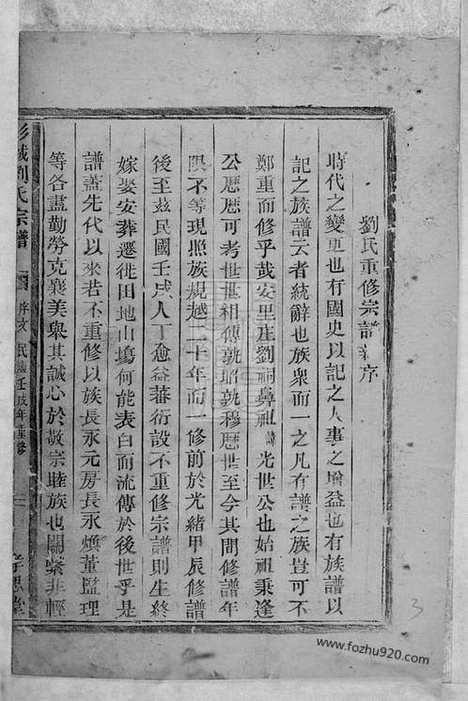 劉氏重修宗譜新序
時代之變更也有國史以記之人事之增益也有族譜以
記之族譜云者統辭也族衆而一之凡有譜之族豈可不
鄭重而修乎哉安里庄劉祠鼻祖諱光世公也始祖秉逢
公歷歷可考世世相傳孰昭孰穆歷世至今其間修譜年
限不等現照族規越二十年而一修前於光緒甲辰修譜
後至茲民國壬戌人丁愈益蕃衍設不重修宗譜則生終
嫁娶安葬遷徙田地山塲何能表白而流傳於後世乎是
譜蓋先代以來若不重修以族長永元房長永煥董監理
等各盡勤勞克襄美舉其誠心於敬宗睦族也關繫非輕
彭城劉氏宗譜
序文
民國壬戌年重修
孝思堂
3
www.fozhu920.com